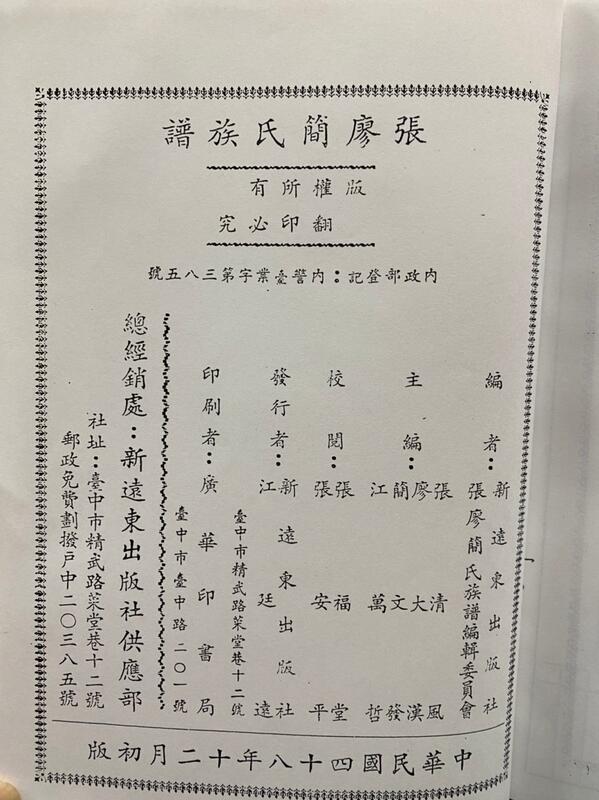 張廖簡氏族譜
版權所有
翻印必究
內政部登記：內警臺業字第三八五號
編者：新遠東出版社
張廖簡氏族譜編輯委員會
主編：張清風
廖大漢
簡文發
江萬哲
校閱：張福堂
張安平
發行者：新遠東出版社
江廷遠
臺中市精武路菜堂巷十二號
印刷者：廣華印書局
臺中市臺中路二〇一號
總經銷處：新遠東出版社供應部
社址：臺中市精武路菜堂巷十二號
郵政免費劃撥戶中二〇三八五號
中華民國四十八年十二月初版